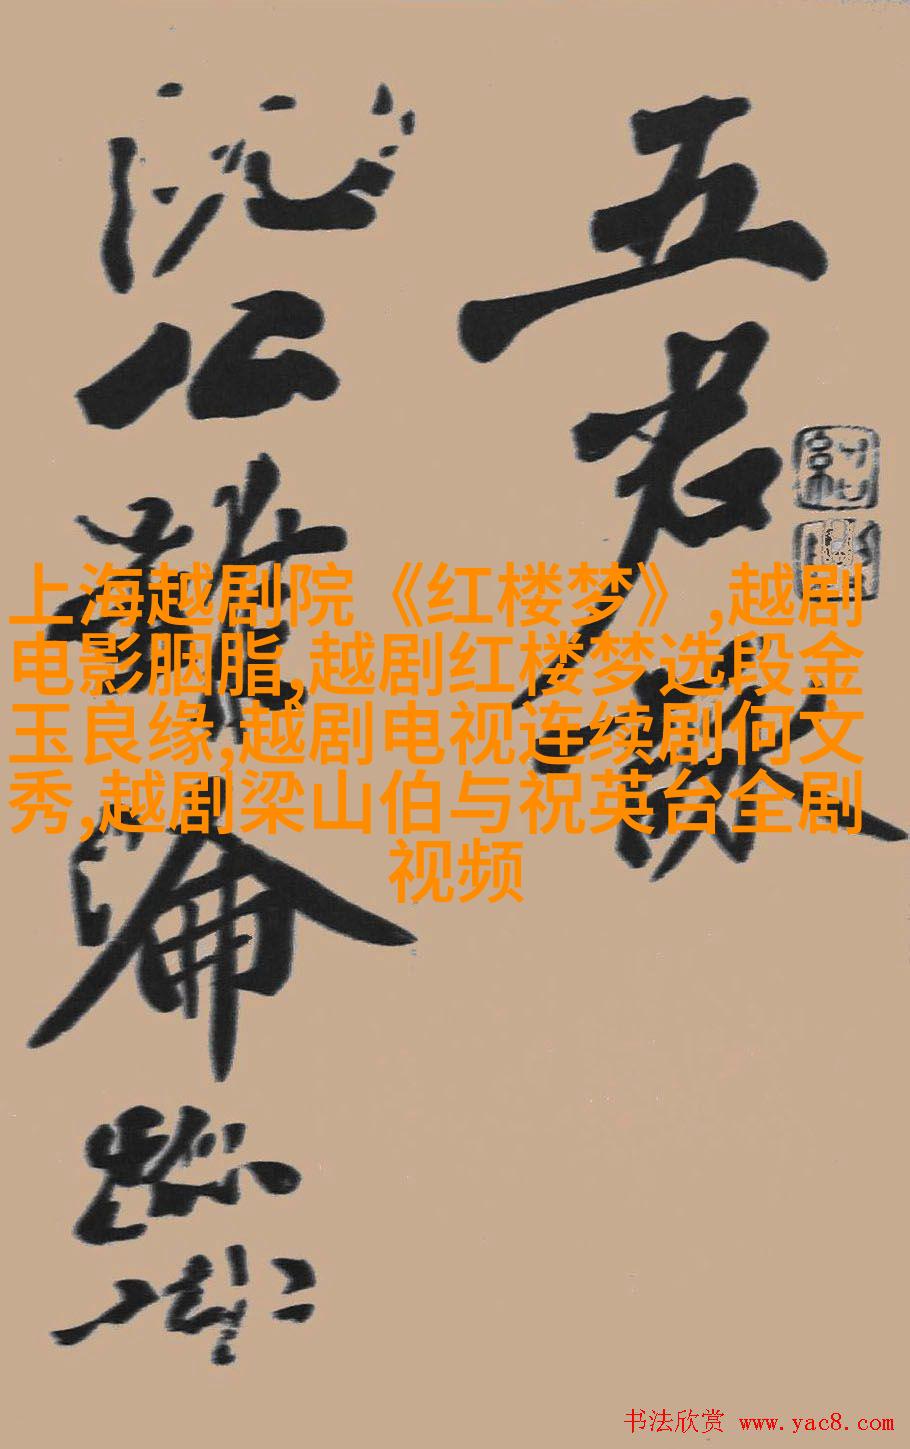 五君詠
阮公雖淪跡識
上海越剧院《红楼梦》,越剧
电影胭脂,越剧红楼梦选段金
玉良缘,越剧电视连续剧何文
秀,越剧梁山伯与祝英台全剧
视频
书法欣赏 www.yac8.com